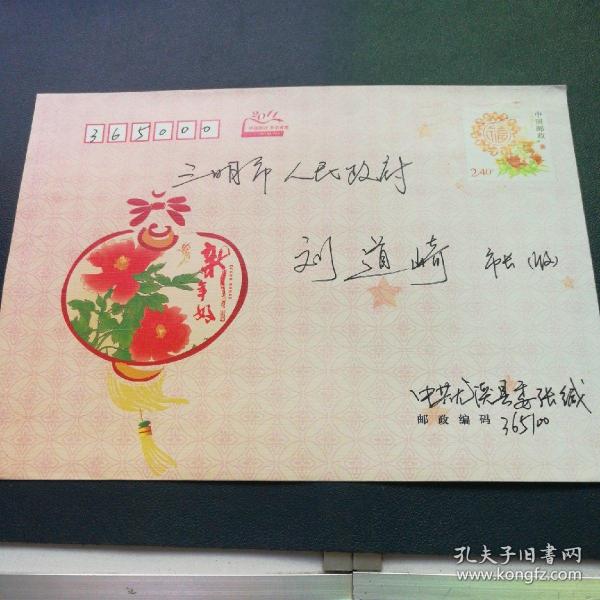 365000
2011
中国邮政
2.40元
三明市人民政府
刘道崎 市长(收)
新年好
中共尤溪县委张缄
邮政编码 365100
孔夫子旧书网
www.kongfz.com